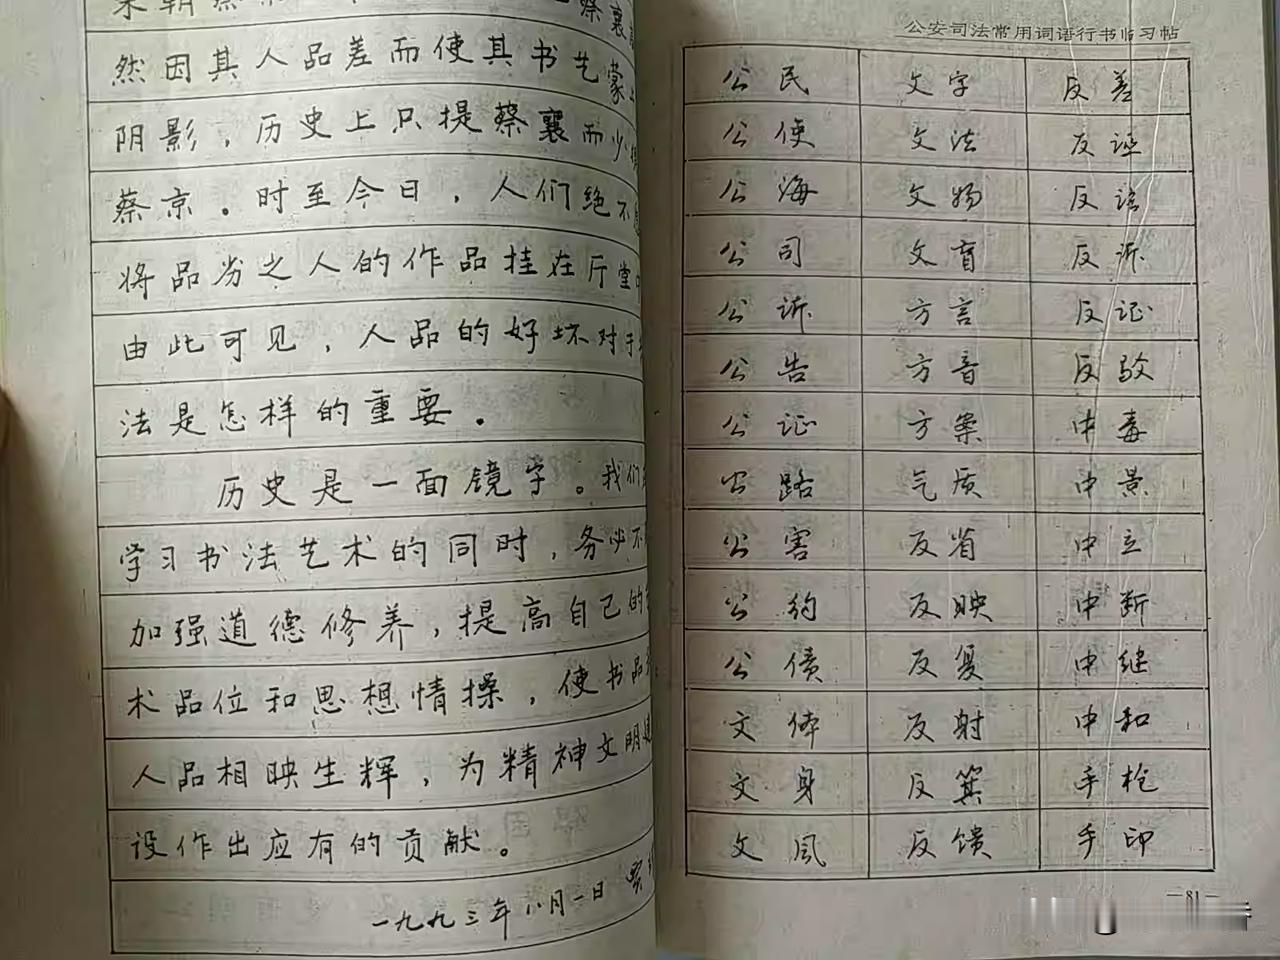 然因其人品差而使其书艺蒙上
阴影，历史上只提蔡襄而少
蔡京。时至今日，人们绝不
将品劣之人的作品挂在厅堂
由此可见，人品的好坏对于
法是怎样的重要。
历史是一面镜子。我们
学习书法艺术的同时，务必不
加强道德修养，提高自己的
术品位和思想情操，使书品
人品相映生辉，为精神文明建
设作出应有的贡献。
一九九三年八月一日
公安司法常用词语行书临习帖
公民 文字 反差
公使 文法 反诬
公海 文物 反语
公司 文盲 反诉
公诉 方言 反证
公告 方音 反驳
公证 方案 中毒
公路 气质 中景
公害 反省 中立
公约 反映 中断
公债 反复 中继
文体 反射 中和
文身 反 手枪
文风 反馈 手印
—81—